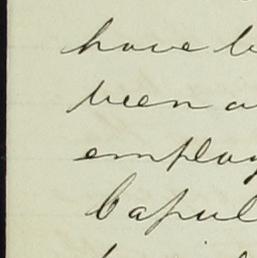 have b
been a
employ
bapul